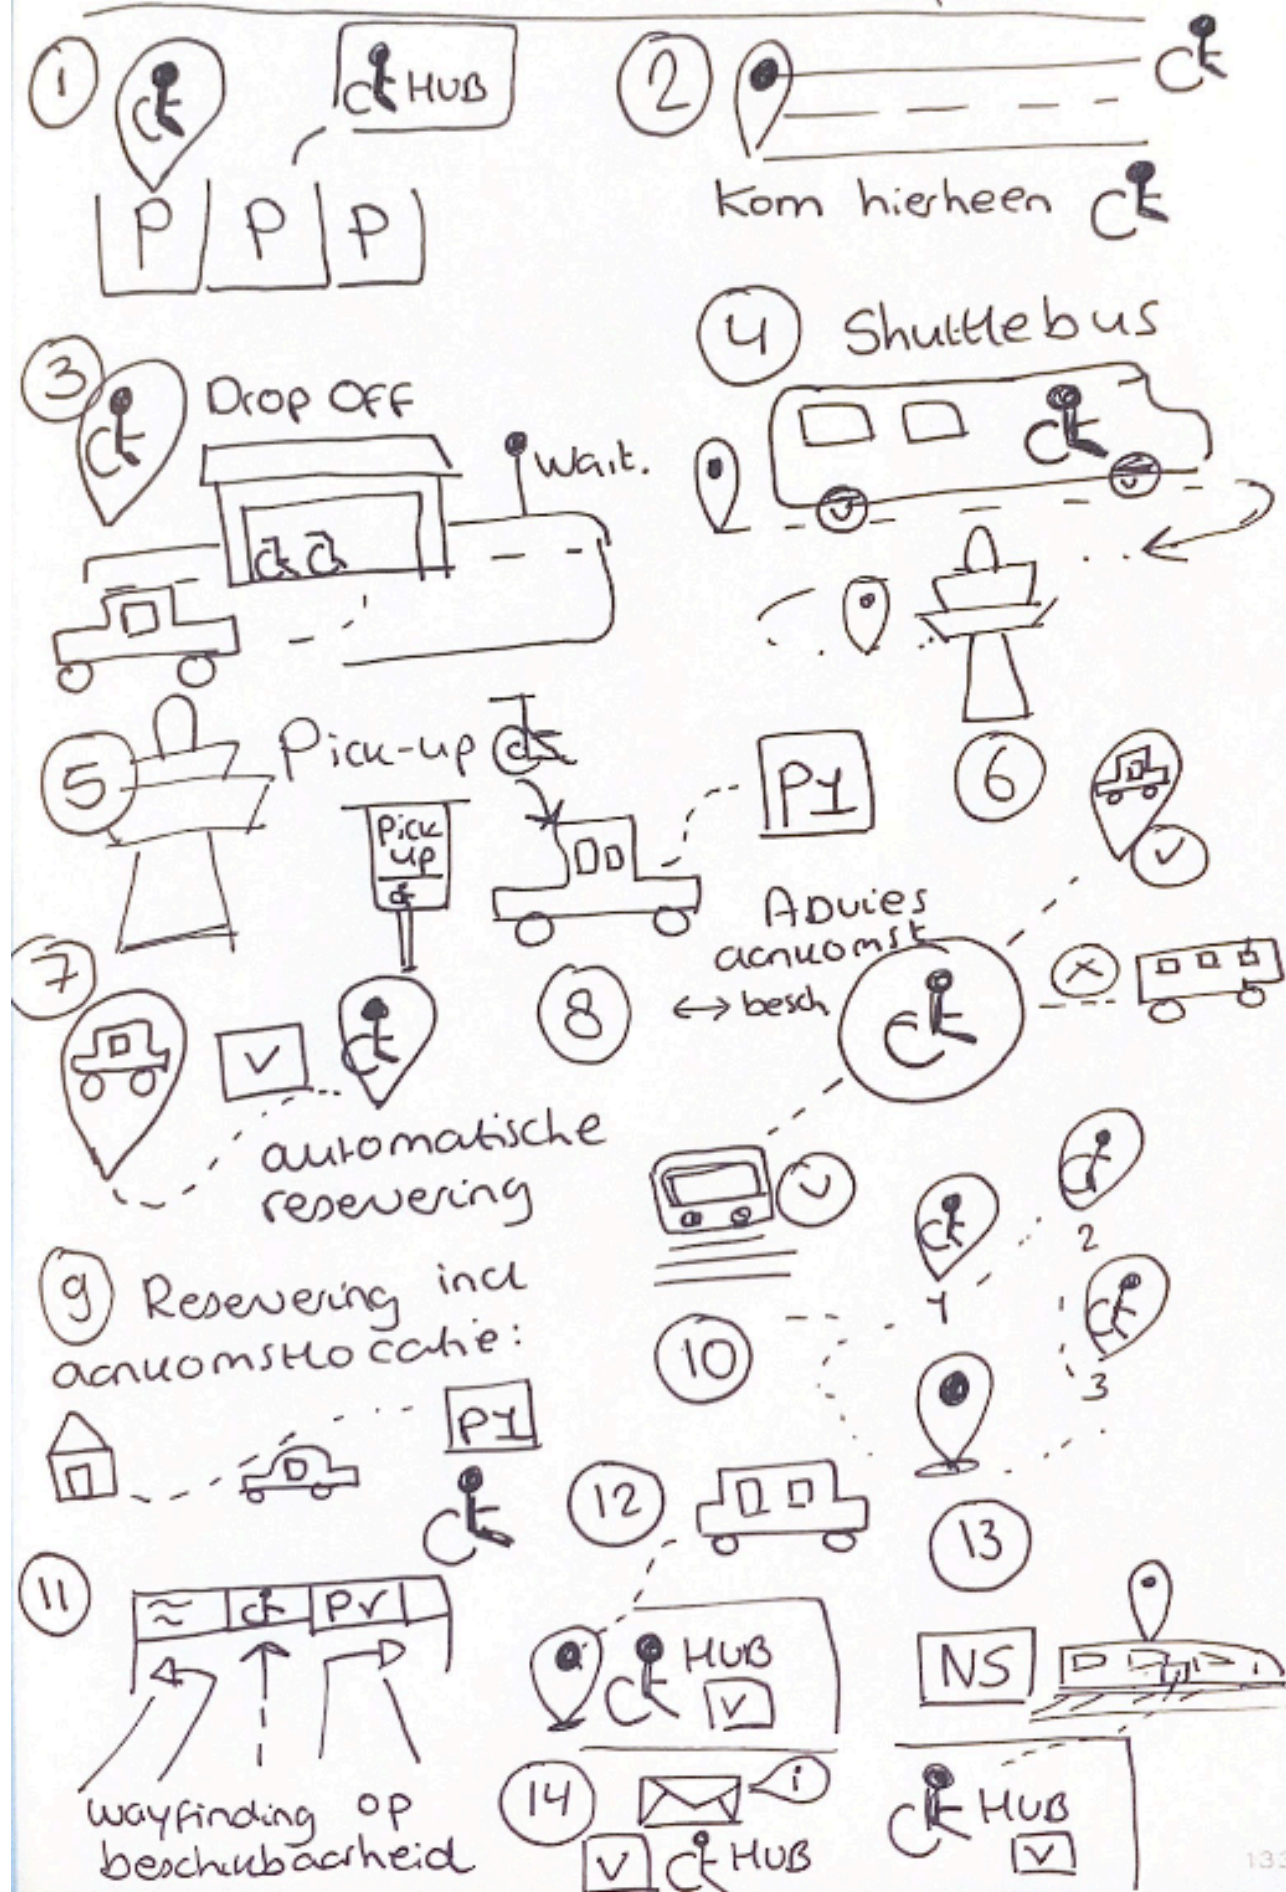 1
HUB
P P P
2
Kom hierheen
3
Drop Off
Wait.
4
Shuttlebus
5
Pick-up
Pick
up
P1
6
7
automatische
reservering
8
Advies
aankomst
↔ besch
9
Reservering incl
aankomstlocatie:
P1
10
1
2
3
11
P
wayfinding op
beschikbaarheid
12
HUB
13
NS
HUB
14
i
HUB
133